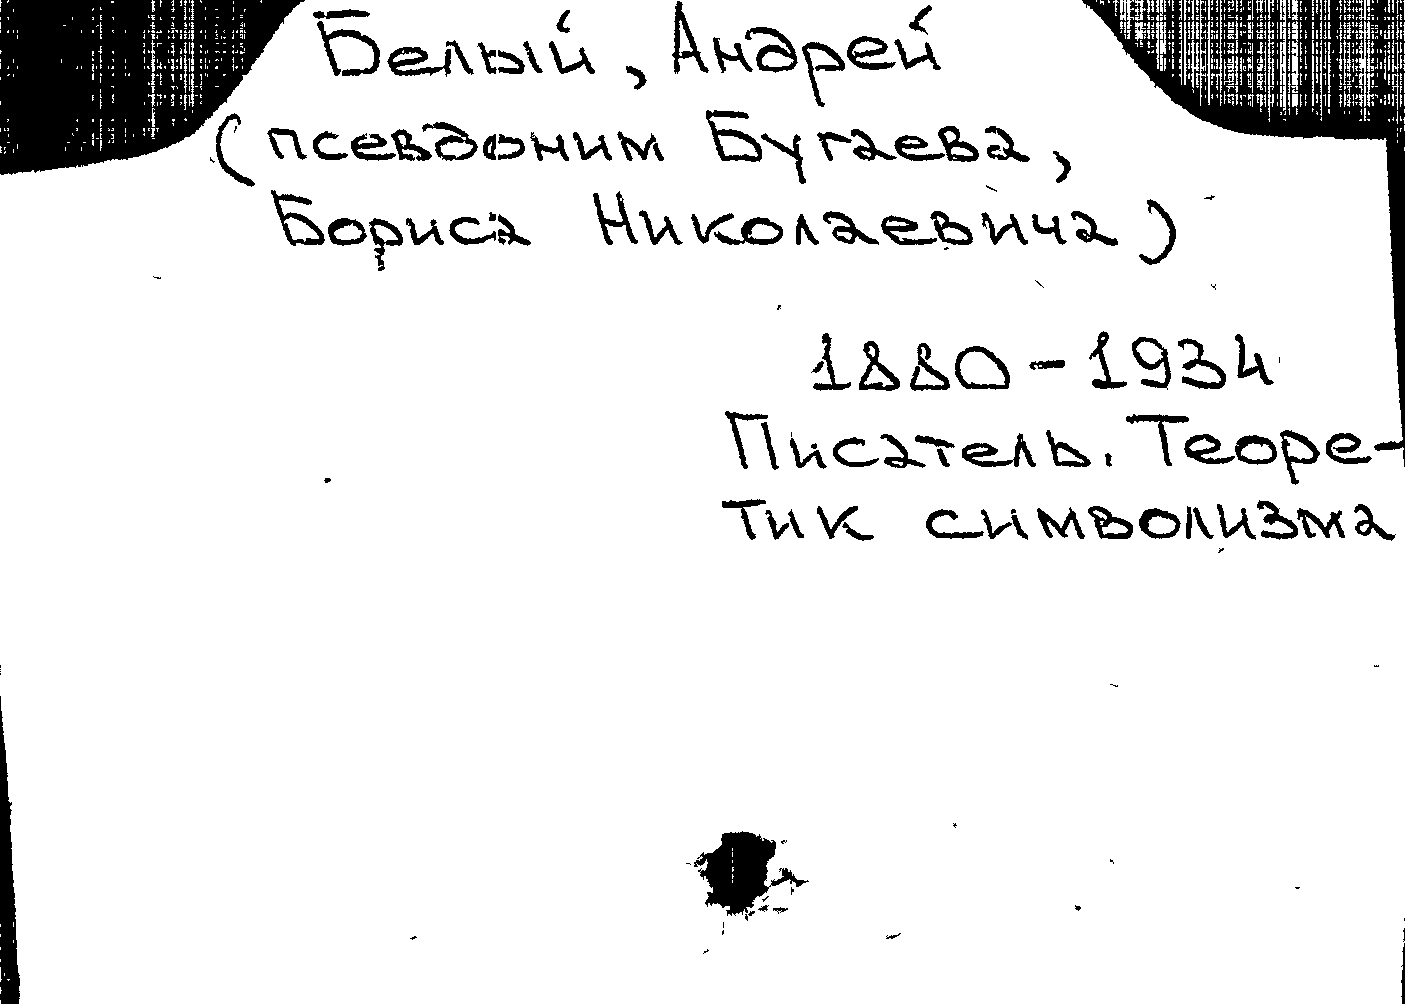 Белый, Андрей
(псевдоним Бугаева,
Бориса Николаевича)
1880-1934
Писатель. Теоре-
тик символизма